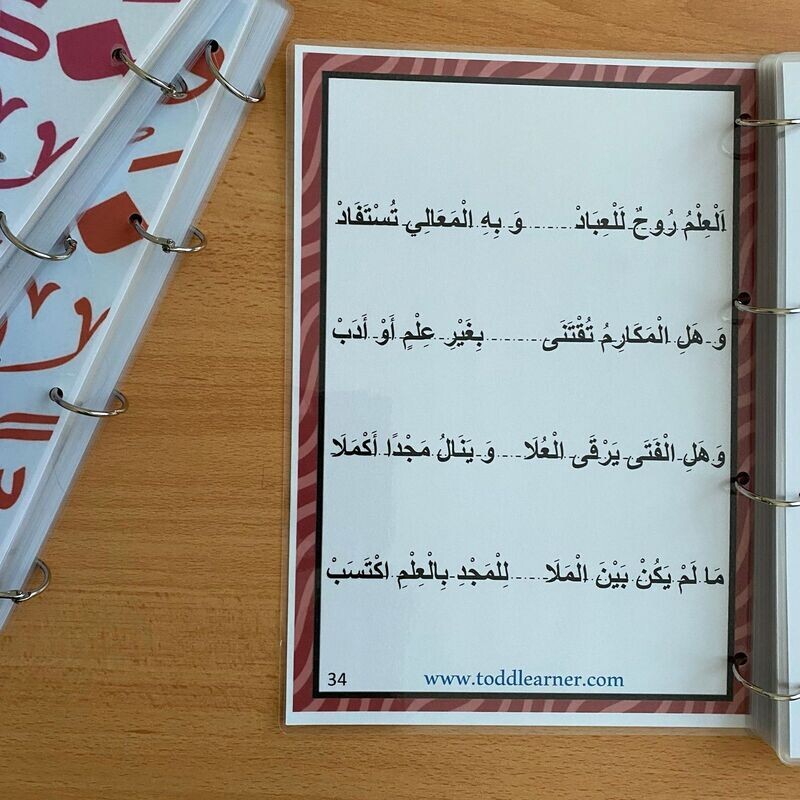 اَلْعِلْمُ رُوحٌ لَلْعِبَادْ ...... وَ بِهِ الْمَعَالِي تُسْتَفَادْ
وَ هَلِ الْمَكَارِمُ تُقْتَنَى ...... بِغَيْرِ عِلْمٍ أَوْ أَدَبْ
وَ هَلِ الْفَتَى يَرْقَى الْعُلَا ... وَ يَنَالُ مَجْدًا أَكْمَلَا
مَا لَمْ يَكُنْ بَيْنَ الْمَلَا ... لِلْمَجْدِ بِالْعِلْمِ اكْتَسَبْ
34 www.toddlearner.com